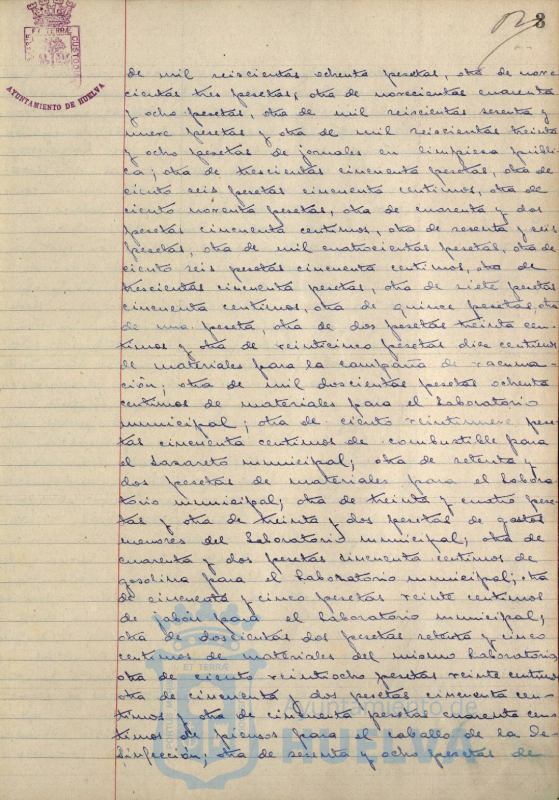 3
AYUNTAMIENTO DE HUELVA
de mil seiscientas ochenta pesetas, otra de nove
cientas tres pesetas, otra de novecientas cuarenta
y ocho pesetas, otra de mil seiscientas sesenta y
nueve pesetas y otra de mil seiscientas treinta
y ocho pesetas de jornales en limpieza públi-
ca; otra de trescientas cincuenta pesetas, otra de
ciento seis pesetas cincuenta centimos, otra de
ciento noventa pesetas, otra de cuarenta y dos
pesetas cincuenta centimos, otra de sesenta y seis
pesetas, otra de mil cuatrocientas pesetas, otra de
ciento seis pesetas cincuenta centimos, otra de
trescientas cincuenta pesetas, otra de siete pesetas
cincuenta centimos, otra de quince pesetas, otra
de una peseta, otra de dos pesetas treinta cen-
timos y otra de veinticinco pesetas diez centimos
de materiales para la campaña de vacuna-
ción; otra de mil doscientas pesetas ochenta
centimos de materiales para el Laboratorio
municipal; otra de ciento veintinueve pese-
tas cincuenta centimos de combustible para
el Lazareto municipal; otra de setenta y
dos pesetas de materiales para el Labora-
torio municipal; otra de treinta y cuatro pese-
tas y otra de treinta y dos pesetas de gastos
menores del Laboratorio municipal; otra de
cuarenta y dos pesetas cincuenta centimos de
gasolina para el Laboratorio municipal; otra
de cincuenta y cinco pesetas veinte centimos
de jabón para el Laboratorio municipal;
otra de doscientas dos pesetas setenta y cinco
centimos de materiales del mismo Laboratorio
otra de ciento veintiocho pesetas veinte centimos
otra de cincuenta y dos pesetas cincuenta cen-
timos y otra de cincuenta pesetas cuarenta cen-
timos de piensos para el caballo de la De-
sinfección; otra de sesenta y ocho pesetas de
ET TERRÆ
Ayuntamiento de
HUELVA